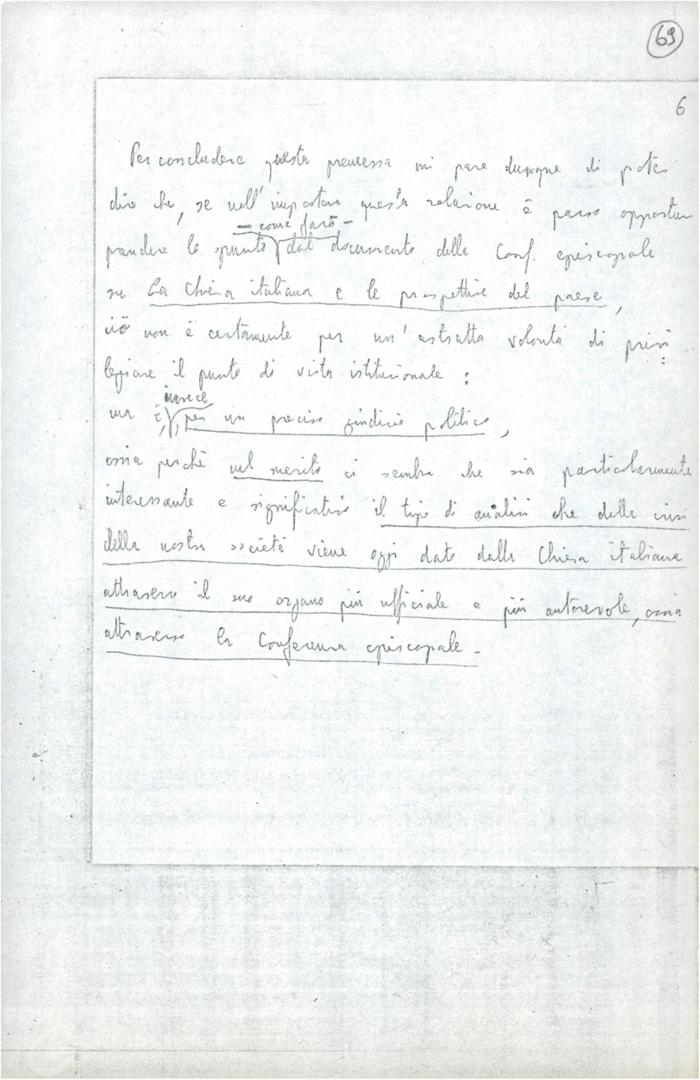 69
6
Per concludere questa premessa mi pare dunque di poter
dire che, se nell'impostare questa relazione è parso opportun
— come farò —
prendere lo spunto dal documento della Conf. episcopale
su La Chiesa italiana e le prospettive del paese,
ciò non è certamente per un'astratta volontà di privi
legiare il punto di vista istituzionale:
invece
ma è, per un preciso giudizio politico,
ossia perché nel merito ci sembra che sia particolarmente
interessante e significativo il tipo di analisi che della crisi
della nostra società viene oggi dato dalla Chiesa italiana
attraverso il suo organo più ufficiale e più autorevole, ossia
attraverso la Conferenza episcopale -